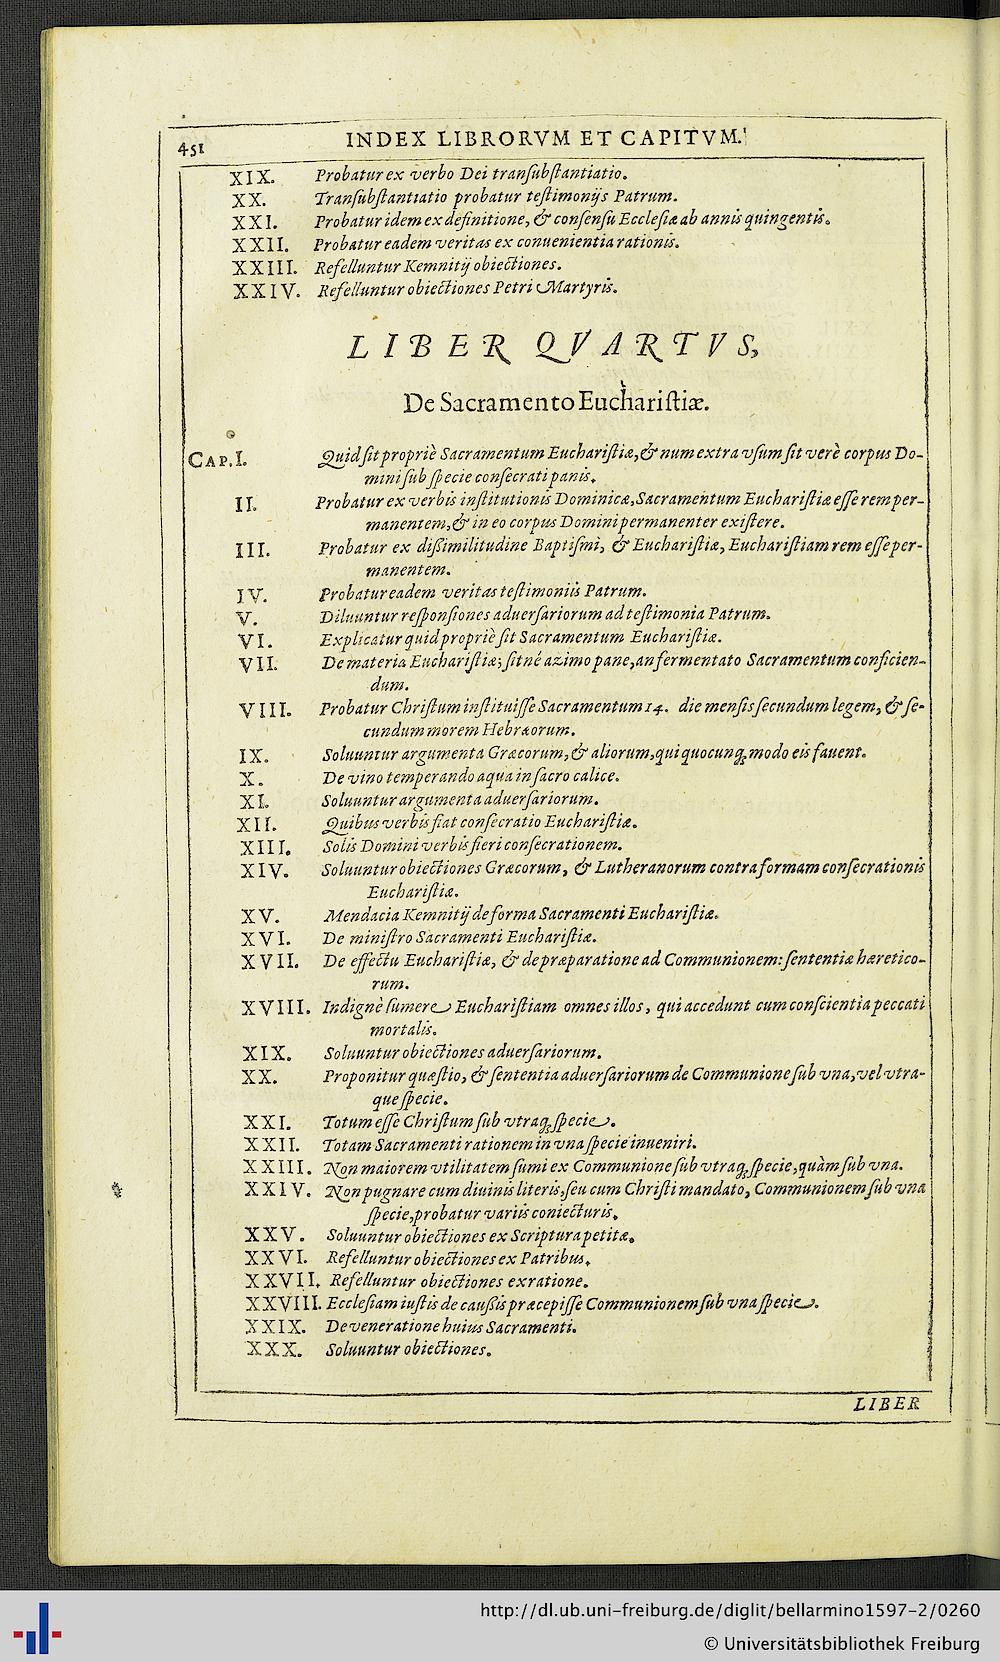 451 INDEX LIBRORVM ET CAPITVM.
XIX. Probatur ex verbo Dei tranſubſtantiatio.
XX. Tranſubſtantiatio probatur teſtimonijs Patrum.
XXI. Probatur idem ex definitione, & conſenſu Eccleſiæ ab annis quingentis.
XXII. Probatur eadem veritas ex conuenientia rationis.
XXIII. Refelluntur Kemnitij obiectiones.
XXIV. Refelluntur obiectiones Petri Martyris.
LIBER QVARTVS,
De Sacramento Euchariſtiæ.
CAP. I. Quid ſit propriè Sacramentum Euchariſtiæ, & num extra vſum ſit verè corpus Do-
mini ſub ſpecie conſecrati panis.
II. Probatur ex verbis inſtitutionis Dominicæ, Sacramentum Euchariſtiæ eſſe rem per-
manentem, & in eo corpus Domini permanenter exiſtere.
III. Probatur ex dißimilitudine Baptiſmi, & Euchariſtiæ, Euchariſtiam rem eſſe per-
manentem.
IV. Probatur eadem veritas teſtimoniis Patrum.
V. Diluuntur reſponſiones aduerſariorum ad teſtimonia Patrum.
VI. Explicatur quid propriè ſit Sacramentum Euchariſtiæ.
VII. De materia Euchariſtiæ; ſitné azimo pane, an fermentato Sacramentum conficien-
dum.
VIII. Probatur Chriſtum inſtituiſſe Sacramentum 14. die menſis ſecundum legem, & ſe-
cundum morem Hebræorum.
IX. Soluuntur argumenta Græcorum, & aliorum, qui quocunq; modo eis fauent.
X. De vino temperando aqua in ſacro calice.
XI. Soluuntur argumenta aduerſariorum.
XII. Quibus verbis fiat conſecratio Euchariſtiæ.
XIII. Solis Domini verbis fieri conſecrationem.
XIV. Soluuntur obiectiones Græcorum, & Lutheranorum contra formam conſecrationis
Euchariſtiæ.
XV. Mendacia Kemnitij de forma Sacramenti Euchariſtiæ.
XVI. De miniſtro Sacramenti Euchariſtiæ.
XVII. De effectu Euchariſtiæ, & de præparatione ad Communionem: ſententiæ hæretico-
rum.
XVIII. Indignè ſumere Euchariſtiam omnes illos, qui accedunt cum conſcientia peccati
mortalis.
XIX. Soluuntur obiectiones aduerſariorum.
XX. Proponitur quæſtio, & ſententia aduerſariorum de Communione ſub vna, vel vtra-
que ſpecie.
XXI. Totum eſſe Chriſtum ſub vtraq; ſpecie.
XXII. Totam Sacramenti rationem in vna ſpecie inueniri.
XXIII. Non maiorem vtilitatem ſumi ex Communione ſub vtraq; ſpecie, quàm ſub vna.
XXIV. Non pugnare cum diuinis literis, ſeu cum Chriſti mandato, Communionem ſub vna
ſpecie, probatur variis coniecturis.
XXV. Soluuntur obiectiones ex Scriptura petitæ.
XXVI. Refelluntur obiectiones ex Patribus.
XXVII. Refelluntur obiectiones ex ratione.
XXVIII. Eccleſiam iuſtis de caußis præcepiſſe Communionem ſub vna ſpecie.
XXIX. De veneratione huius Sacramenti.
XXX. Soluuntur obiectiones.
LIBER
http://dl.ub.uni-freiburg.de/diglit/bellarmino1597-2/0260
© Universitätsbibliothek Freiburg